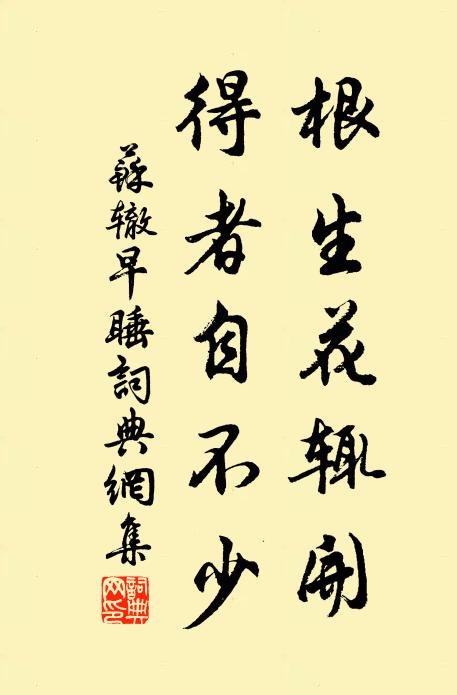 根生花辄開
得者自不少
蘇辙早睡詞典網集
詞典網印